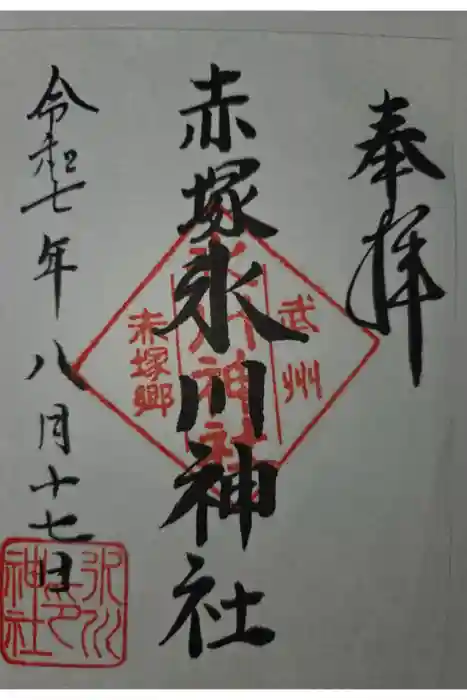 奉拝
武州
氷川神社
赤塚郷
赤塚氷川神社
令和七年八月十七日
氷川
神社
之印